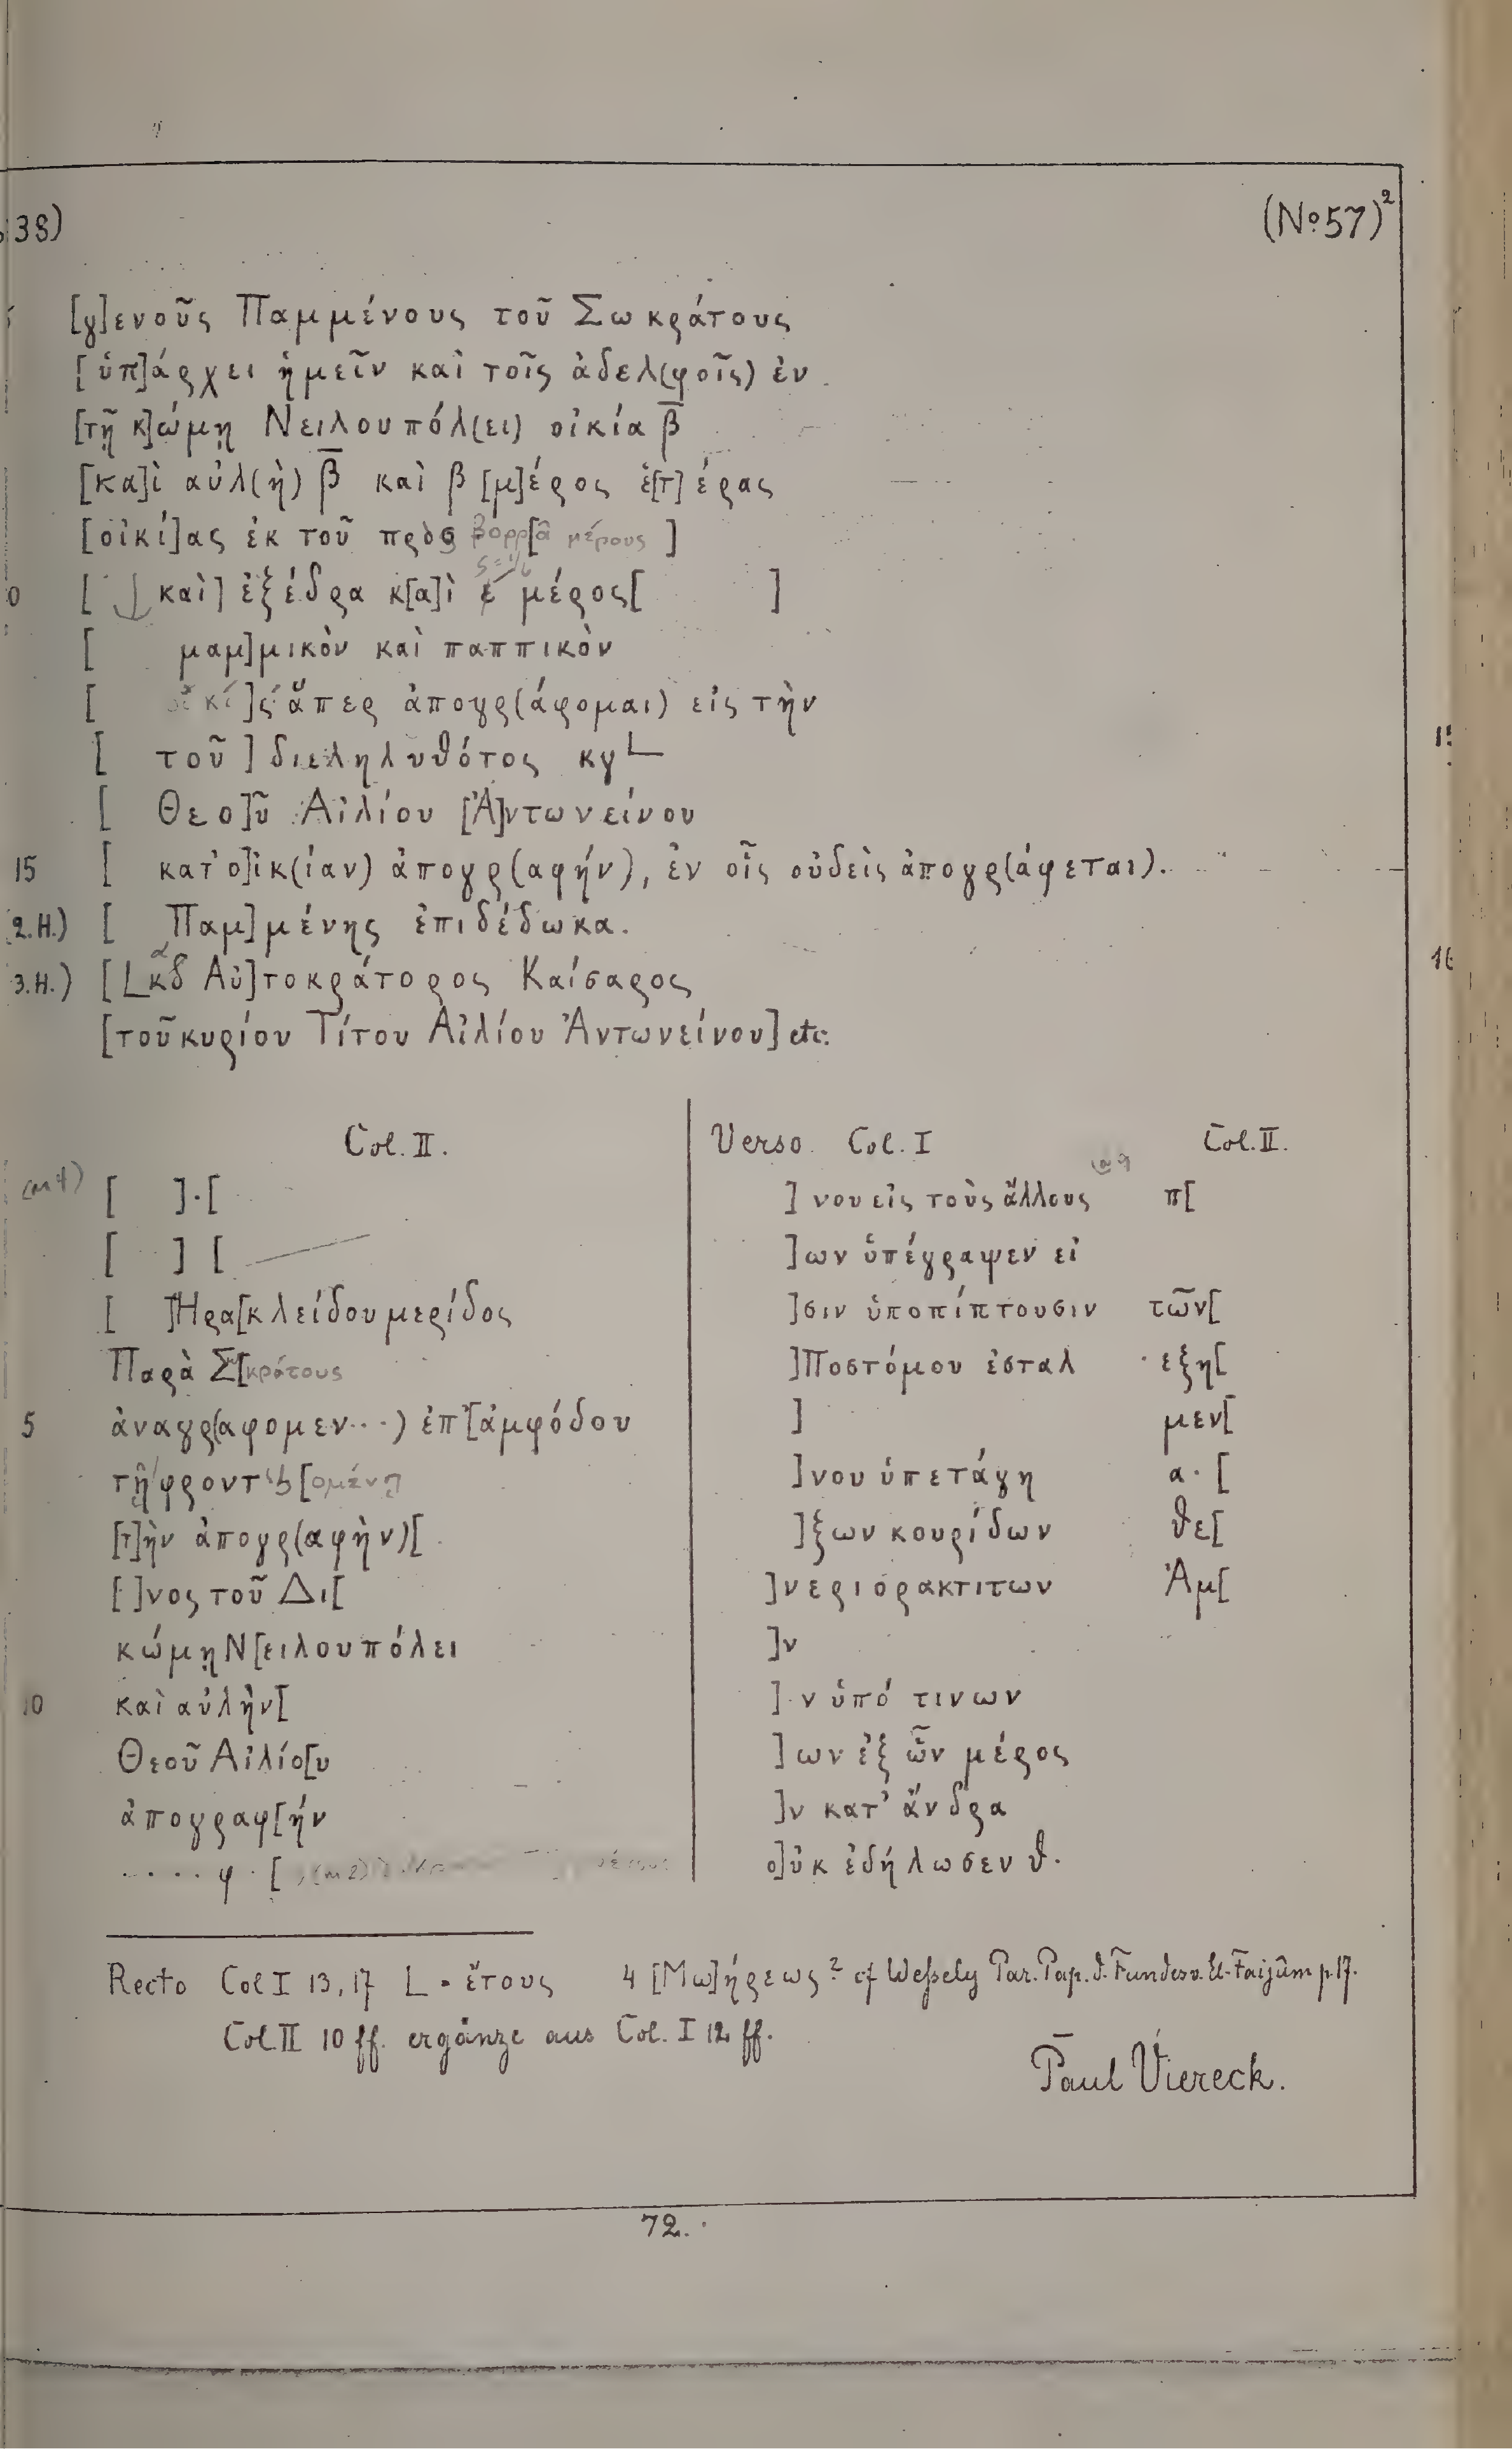 38)
(No 57)²
[γ]ενοῦς Παμμένους τοῦ Σωκράτους
[ὑπ]άρχει ἡμεῖν καὶ τοῖς ἀδελ(φοῖς) ἐν
[τῇ κ]ώμῃ Νειλουπόλ(ει) οἰκία β̅
[κα]ὶ αὐλ(ὴ) β̅ καὶ β [μ]έρος ἑ[τ]έρας
[οἰκί]ας ἐκ τοῦ πρὸς βορρ[ᾶ μέρους ]
[ καὶ] ἐξέδρα κ[α]ὶ ε΄ μέρος[ ]
[ μαμ]μικὸν καὶ παππικὸν
[ ]ς ἅπερ ἀπογρ(άφομαι) εἰς τὴν
[ τοῦ ] διεληλυθότος κγ L
[ Θεο]ῦ Αἰλίου [Ἀ]ντωνείνου
15 [ κατ' ο]ἰκ(ίαν) ἀπογρ(αφήν), ἐν οἷς οὐδεὶς ἀπογρ(άφεται).
(2. H.) [ Παμ]μένης ἐπιδέδωκα.
3. H.) [L κδ Αὐ]τοκράτορος Καίσαρος
[τοῦ κυρίου Τίτου Αἰλίου Ἀντωνείνου] etc.
Col. II.
[ ]·[
[ ] [
[ ]Ἡρα[κλείδου μερίδος
Παρὰ Σ[κράτους
5 ἀναγρ(αφομεν...) ἐπ' [ἀμφόδου
τῇ φροντιζ[ομένῃ
[τ]ὴν ἀπογρ(αφὴν)[
[ ]νος τοῦ Δι[
κώμῃ Ν[ειλουπόλει
10 καὶ αὐλὴν[
Θεοῦ Αἰλίο[υ
ἀπογραφ[ήν
····φ·[
Verso Col. I
] νου εἰς τοὺς ἄλλους
]ων ὑπέγραψεν εἰ
]σιν ὑποπίπτουσιν
]Ποστόμου ἐσταλ
]
]νου ὑπετάγη
]ξων κουρίδων
]νεριορακτιτων
]ν
]·ν ὑπό τινων
]ων ἐξ ὧν μέρος
]ν κατ' ἄνδρα
ο]ὐκ ἐδήλωσεν θ.
Col. II.
π[
τῶν[
·εξη[
μεν[
α·[
θε[
Ἀμ[
Recto Col I 13, 17 L = ἔτους 4 [Μω]ήρεως? cf Weſsely Par. Pap. d. Fundes v. El-Faijûm p. 17.
Col II 10 ff. ergänze aus Col. I 12 ff.
Paul Viereck.
72.